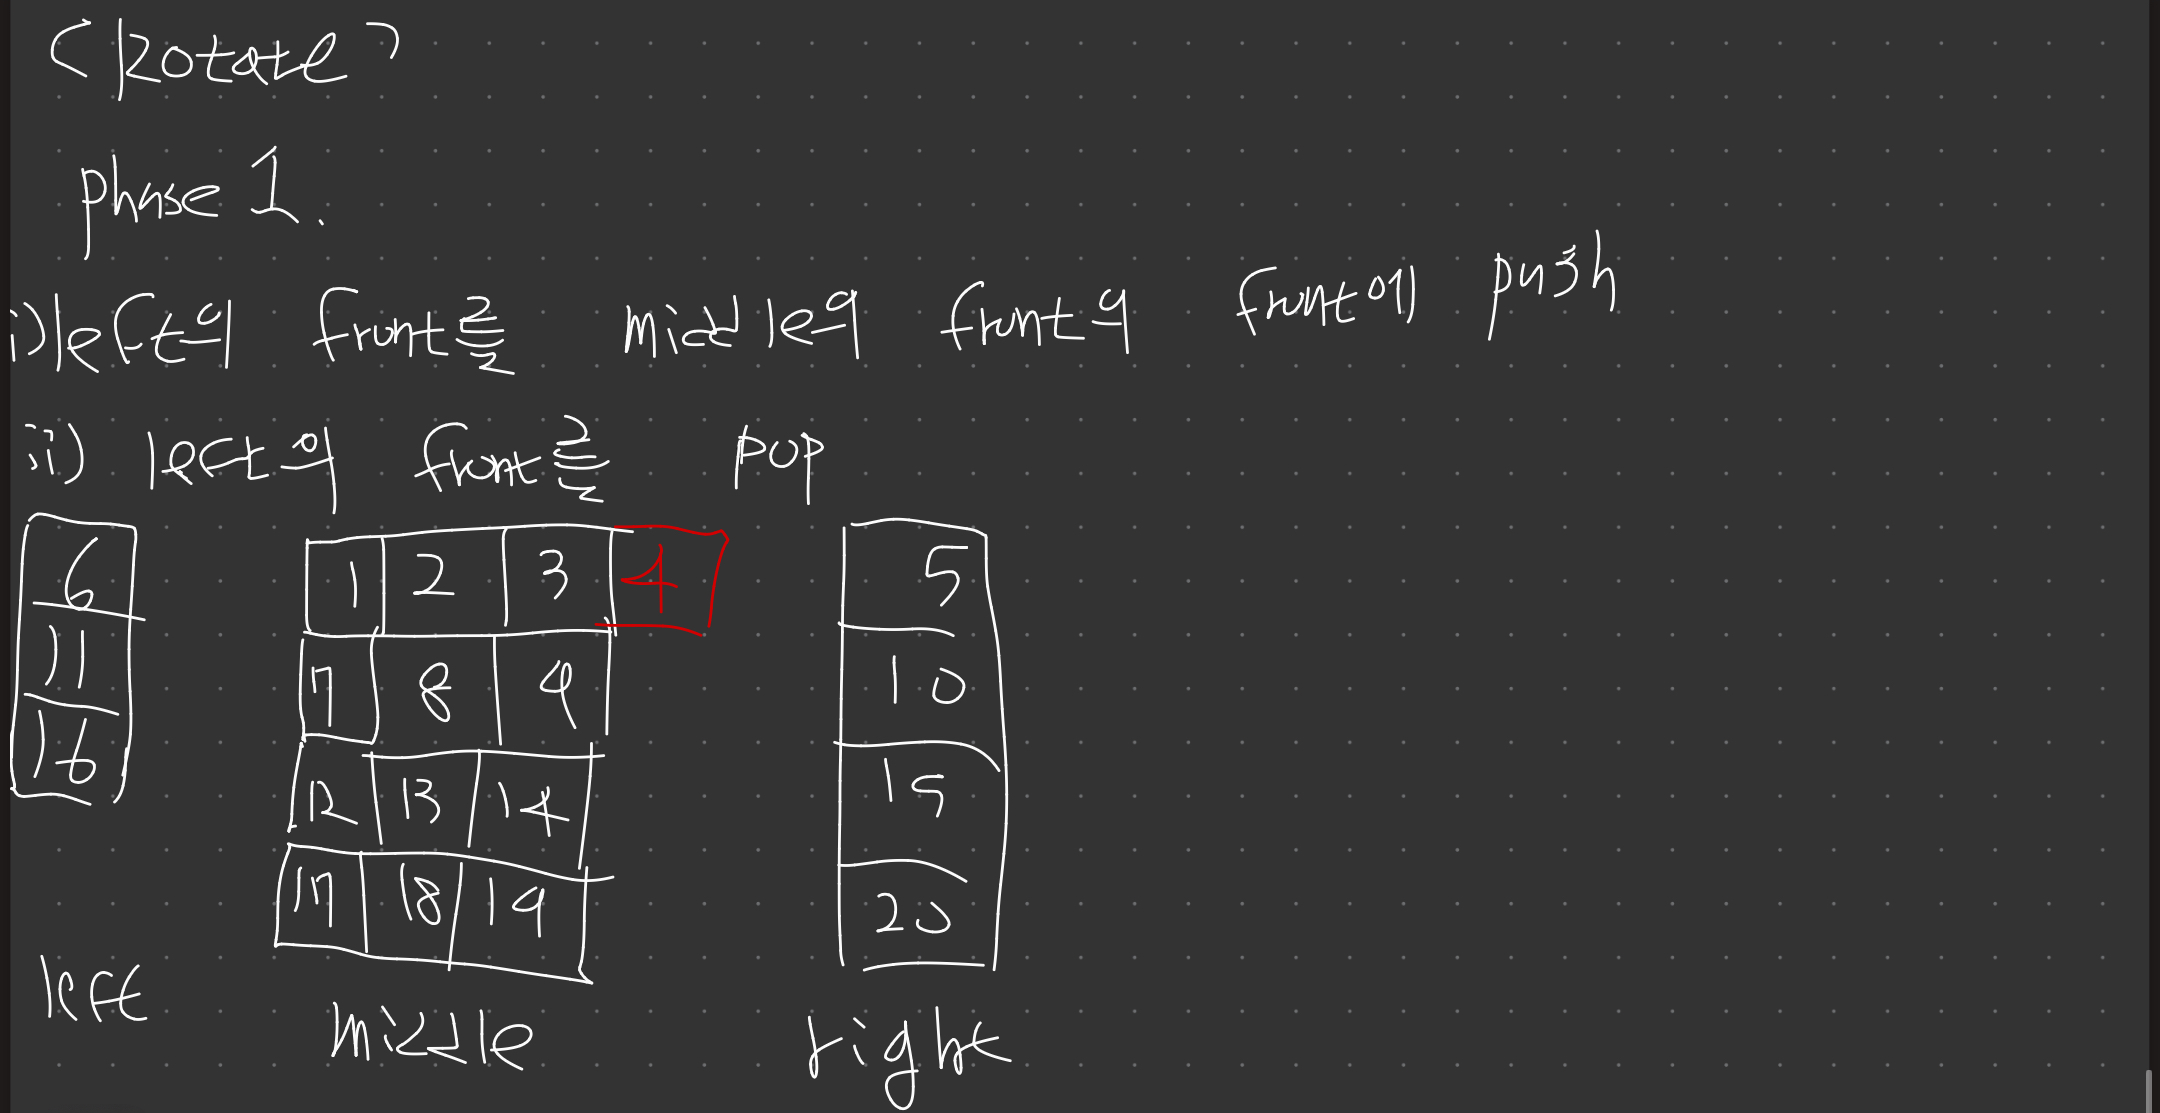 <Rotate>
phase 1.
i) left의 front를 middle의 front의 front에 push
ii) left의 front를 pop
6 1 2 3 4 5
11 7 8 9 10
16 12 13 14 15
17 18 19 20
left middle right